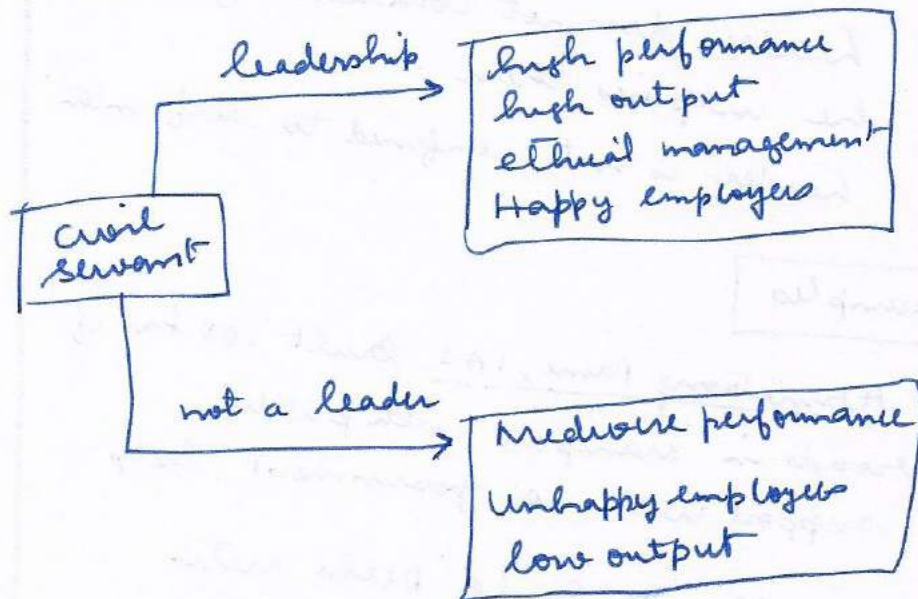 leadership
high performance
high output
ethical management
Happy employees
civil
servant
not a leader
Mediocre performance
Unhappy employees
low output